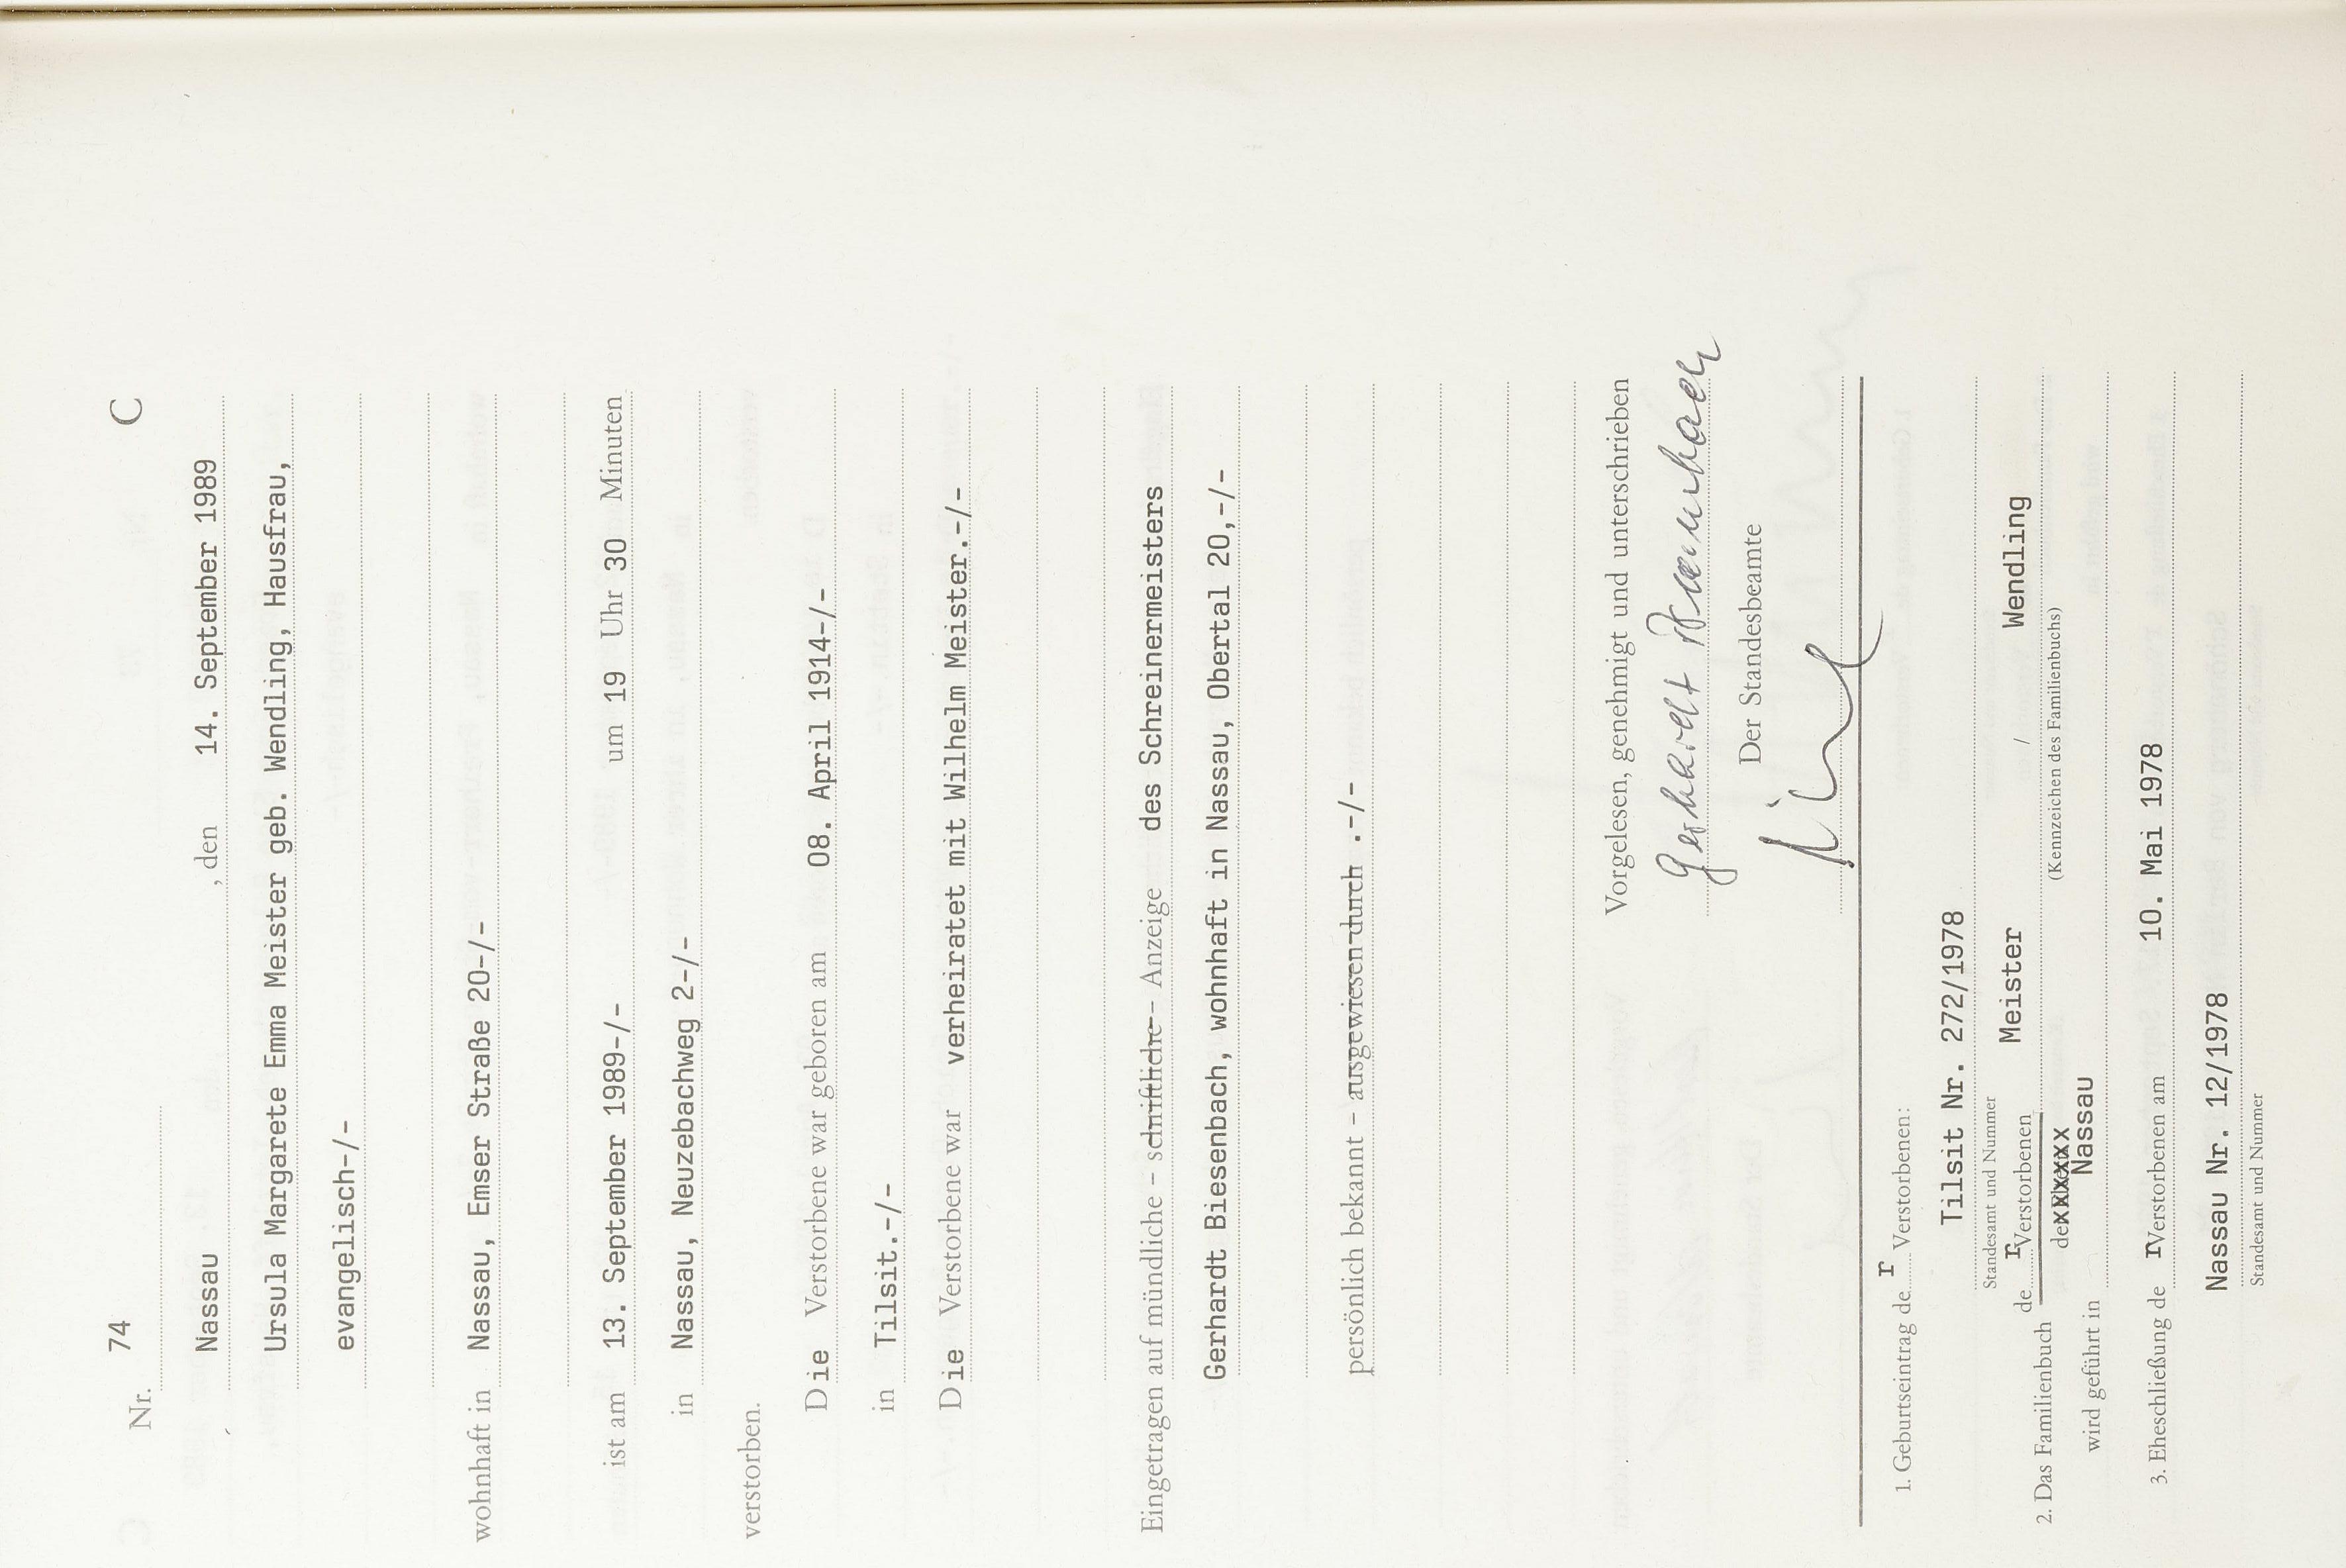 Nr. 74 C
Nassau , den 14. September 1989
Ursula Margarete Emma Meister geb. Wendling, Hausfrau,
evangelisch-/-
wohnhaft in Nassau, Emser Straße 20-/-
ist am 13. September 1989-/- um 19 Uhr 30 Minuten
in Nassau, Neuzebachweg 2-/-
verstorben.
Die Verstorbene war geboren am 08. April 1914-/-
in Tilsit.-/-
Die Verstorbene war verheiratet mit Wilhelm Meister.-/-
Eingetragen auf mündliche – schriftliche – Anzeige des Schreinermeisters
Gerhardt Biesenbach, wohnhaft in Nassau, Obertal 20,-/-
persönlich bekannt – ausgewiesen durch .-/-
Vorgelesen, genehmigt und unterschrieben
Gerhardt Biesenbach
Der Standesbeamte
1. Geburtseintrag der Verstorbenen:
Tilsit Nr. 272/1978
Standesamt und Nummer
2. Das Familienbuch der Verstorbenen Meister / Wendling
(Kennzeichen des Familienbuchs)
wird geführt in Nassau
3. Eheschließung der Verstorbenen am 10. Mai 1978
Nassau Nr. 12/1978
Standesamt und Nummer